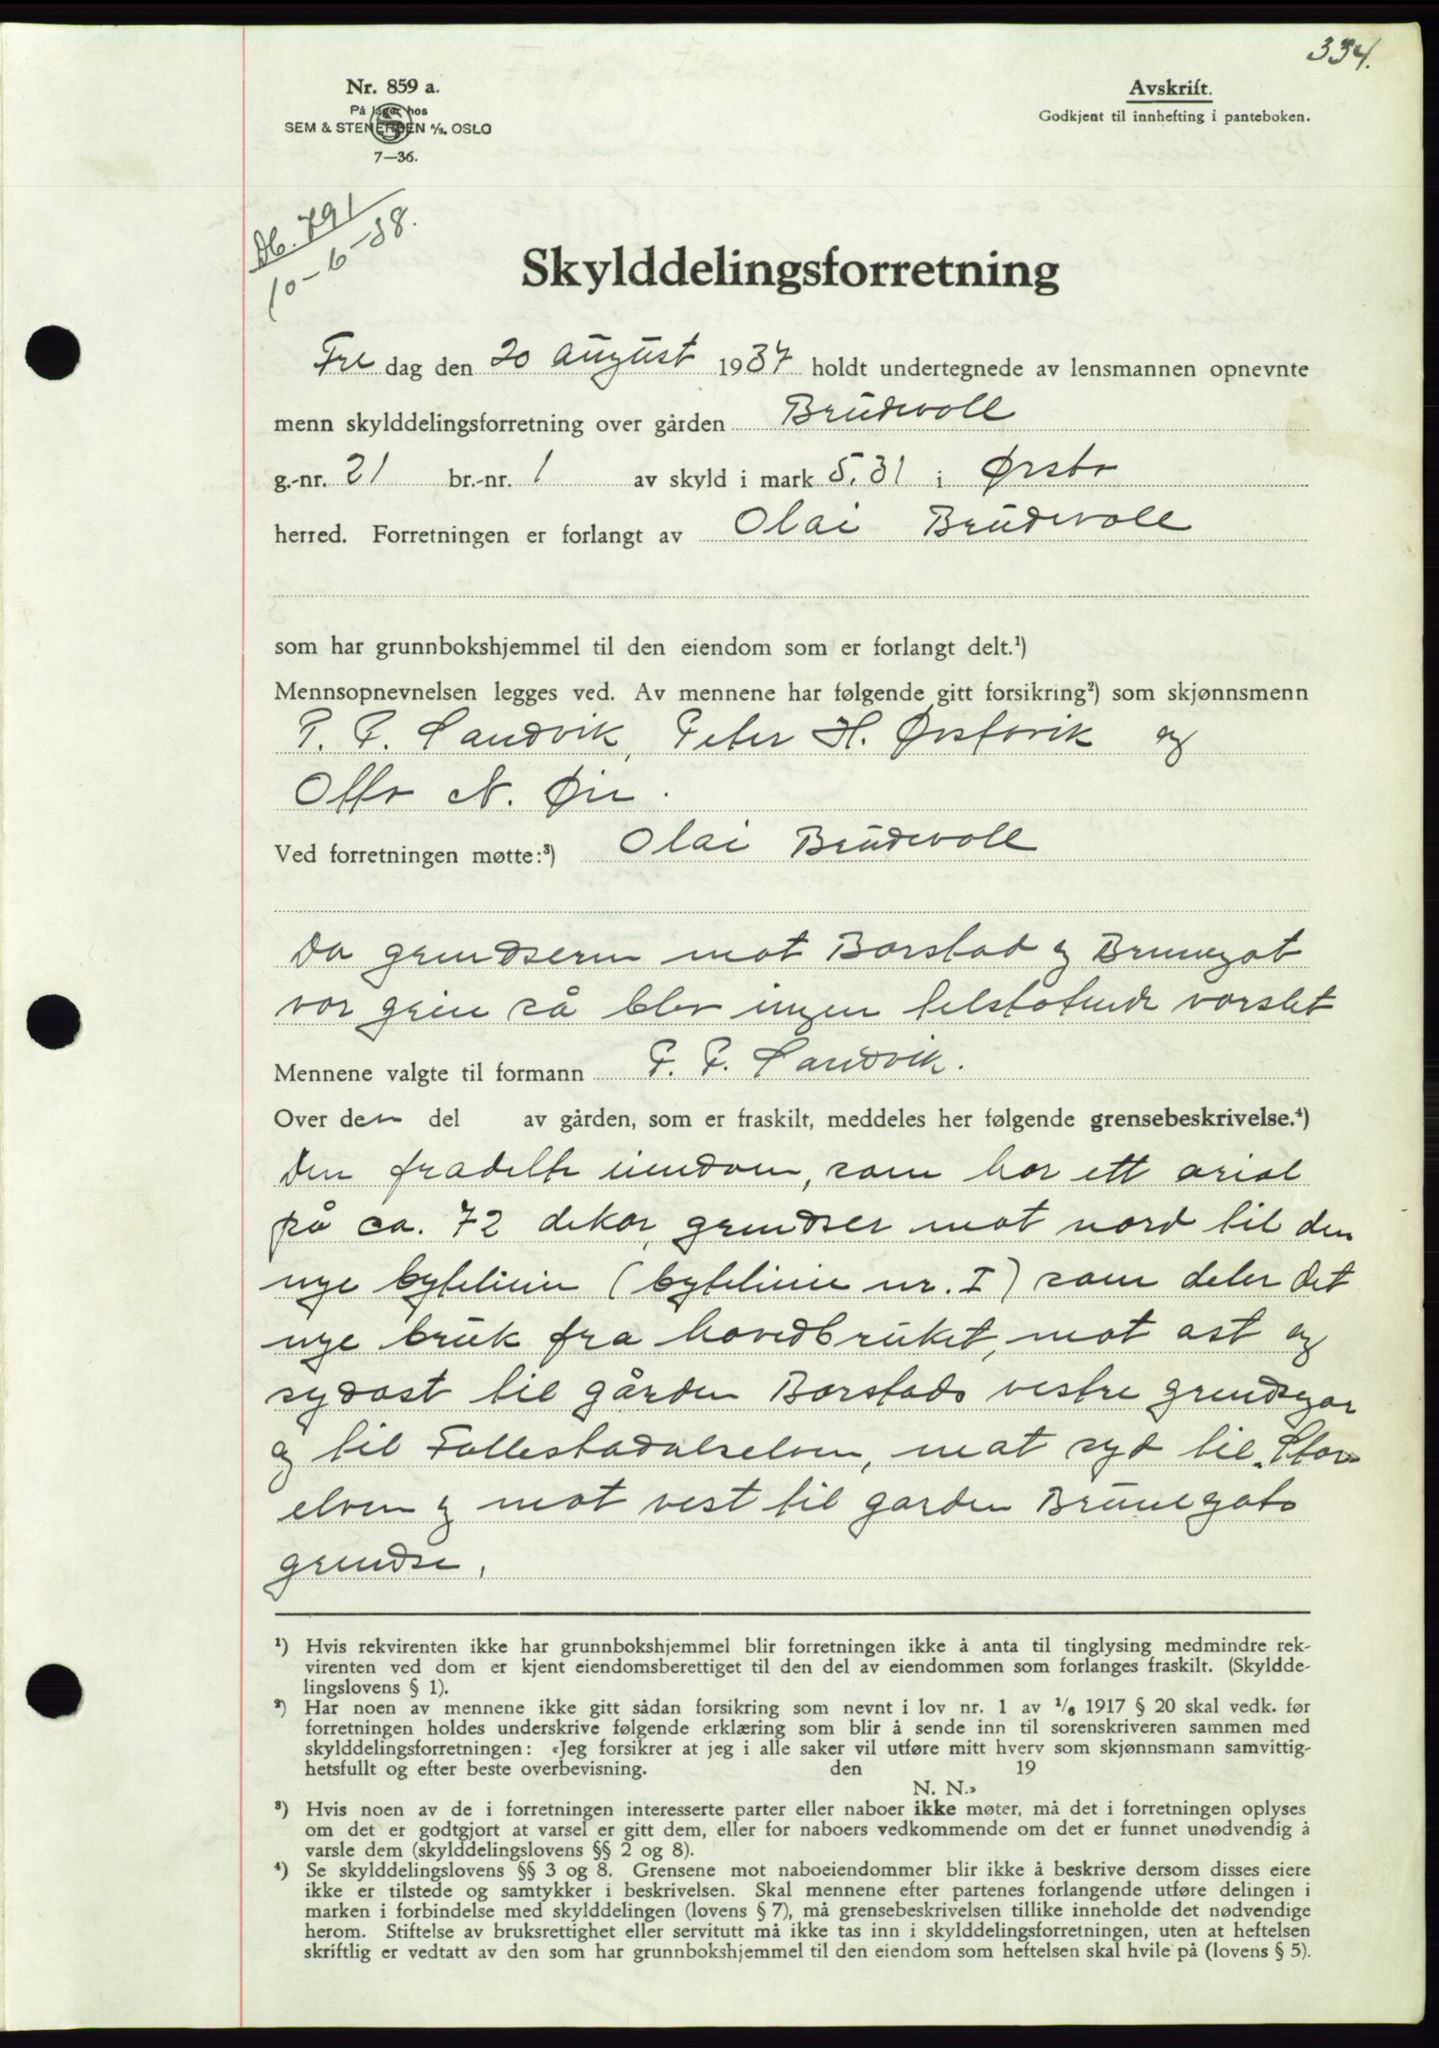 334.
Nr. 859 a.
På lager hos
SEM & STENERSEN A/S, OSLO
7—36.
Avskrift.
Godkjent til innhefting i panteboken.
Db. 791
10-6-38.
Skylddelingsforretning
Fre dag den 20 august 1937 holdt undertegnede av lensmannen opnevnte
menn skylddelingsforretning over gården Brudevoll
g.-nr. 21 br.-nr. 1 av skyld i mark 5.31 i Ørsta
herred. Forretningen er forlangt av Olai Brudevoll
som har grunnbokshjemmel til den eiendom som er forlangt delt.¹)
Mennsopnevnelsen legges ved. Av mennene har følgende gitt forsikring²) som skjønnsmenn
P. P. Sandvik, Peter H. Ørstavik og
Otto N. Øie.
Ved forretningen møtte:³) Olai Brudevoll
Da grendsene mot Borstad og Brunegot
var grei så blev ingen tilstøtende varslet
Mennene valgte til formann P. P. Sandvik.
Over den del av gården, som er fraskilt, meddeles her følgende grensebeskrivelse.⁴)
Den fradelte eiendom, som har ett arial
på ca. 72 dekar, grendser mot nord til den
nye bytelinie (bytelinie nr. I) som deler det
nye bruk fra hovedbruket, mot ost og
sydost til gården Borstads vestre grendsegar
og til Follestadalselven, mot syd til Stor-
elven og mot vest til garden Brunegots
grendse.
¹) Hvis rekvirenten ikke har grunnbokshjemmel blir forretningen ikke å anta til tinglysing medmindre rek-
virenten ved dom er kjent eiendomsberettiget til den del av eiendommen som forlanges fraskilt. (Skyldde-
lingslovens § 1).
²) Har noen av mennene ikke gitt sådan forsikring som nevnt i lov nr. 1 av ¹/₆ 1917 § 20 skal vedk. før
forretningen holdes underskrive følgende erklæring som blir å sende inn til sorenskriveren sammen med
skylddelingsforretningen: «Jeg forsikrer at jeg i alle saker vil utføre mitt hverv som skjønnsmann samvittig-
hetsfullt og efter beste overbevisning. den 19
N. N.»
³) Hvis noen av de i forretningen interesserte parter eller naboer ikke møter, må det i forretningen oplyses
om det er godtgjort at varsel er gitt dem, eller for naboers vedkommende om det er funnet unødvendig å
varsle dem (skylddelingslovens §§ 2 og 8).
⁴) Se skylddelingslovens §§ 3 og 8. Grensene mot naboeiendommer blir ikke å beskrive dersom disses eiere
ikke er tilstede og samtykker i beskrivelsen. Skal mennene efter partenes forlangende utføre delingen i
marken i forbindelse med skylddelingen (lovens § 7), må grensebeskrivelsen tillike inneholde det nødvendige
herom. Stiftelse av bruksrettighet eller servitutt må ikke tas inn i skylddelingsforretningen, uten at heftelsen
skriftlig er vedtatt av den som har grunnbokshjemmel til den eiendom som heftelsen skal hvile på (lovens § 5).